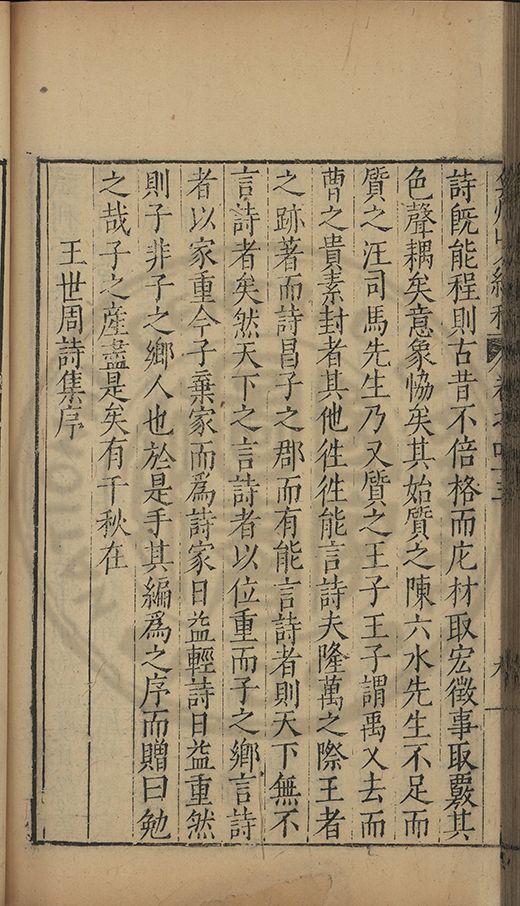 詩旣能程則古昔不倍格而庀材取宏徵事取覈其
色聲耦矣意象恊矣其始質之陳六水先生不足而
質之汪司馬先生乃又質之王子王子謂禹乂去而
曹之貴素封者其他徃徃能言詩夫隆萬之際王者
之跡著而詩昌子之郡而有能言詩者則天下無不
言詩者矣然天下之言詩者以位重而子之鄉言詩
者以家重今子棄家而爲詩家日益輕詩日益重然
則子非子之鄉人也於是手其編爲之序而贈曰勉
之哉子之産盡是矣有千秋在
王世周詩集序